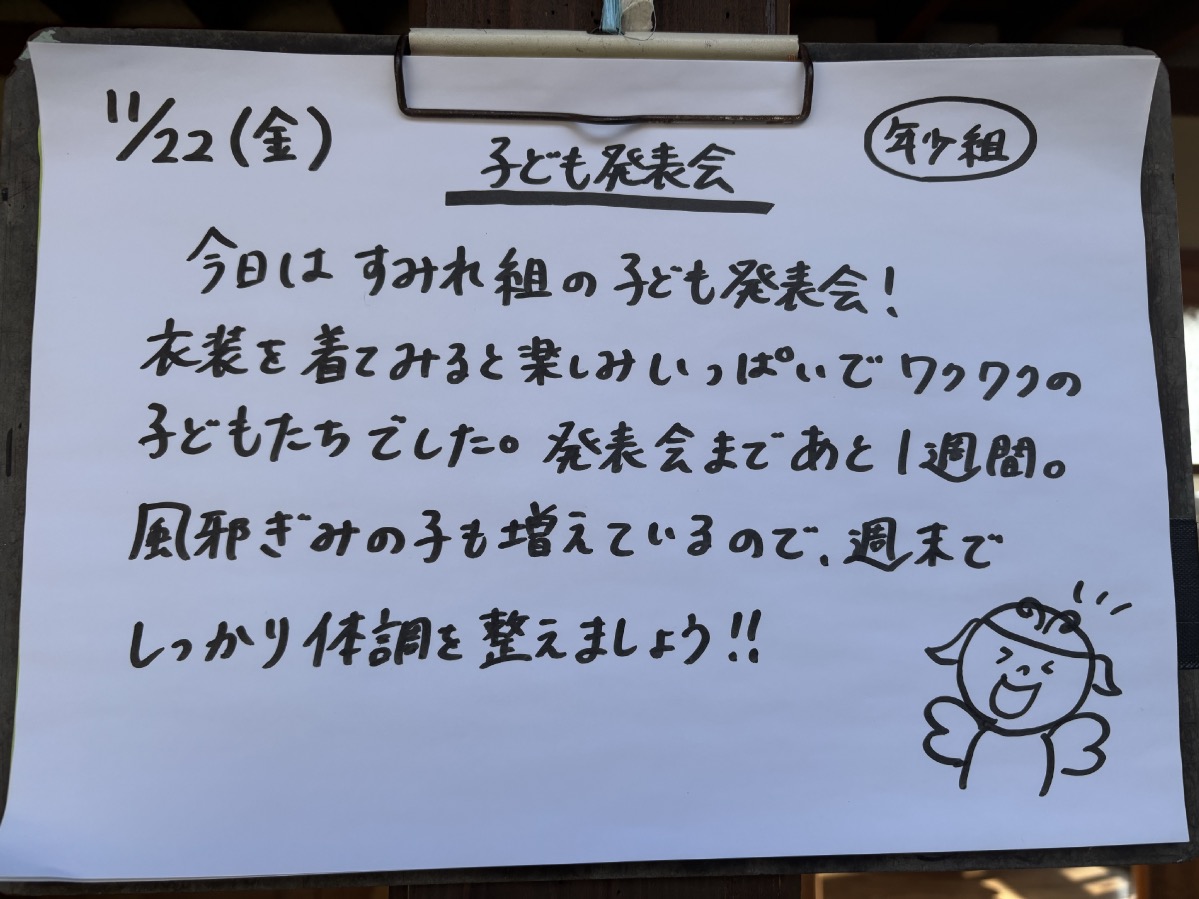 11/22(金)
子ども発表会
年少組
今日はすみれ組の子ども発表会!
衣装を着てみると楽しみいっぱいでワクワクの
子どもたちでした。発表会まであと1週間。
風邪ぎみの子も増えているので、週末で
しっかり体調を整えましょう!!